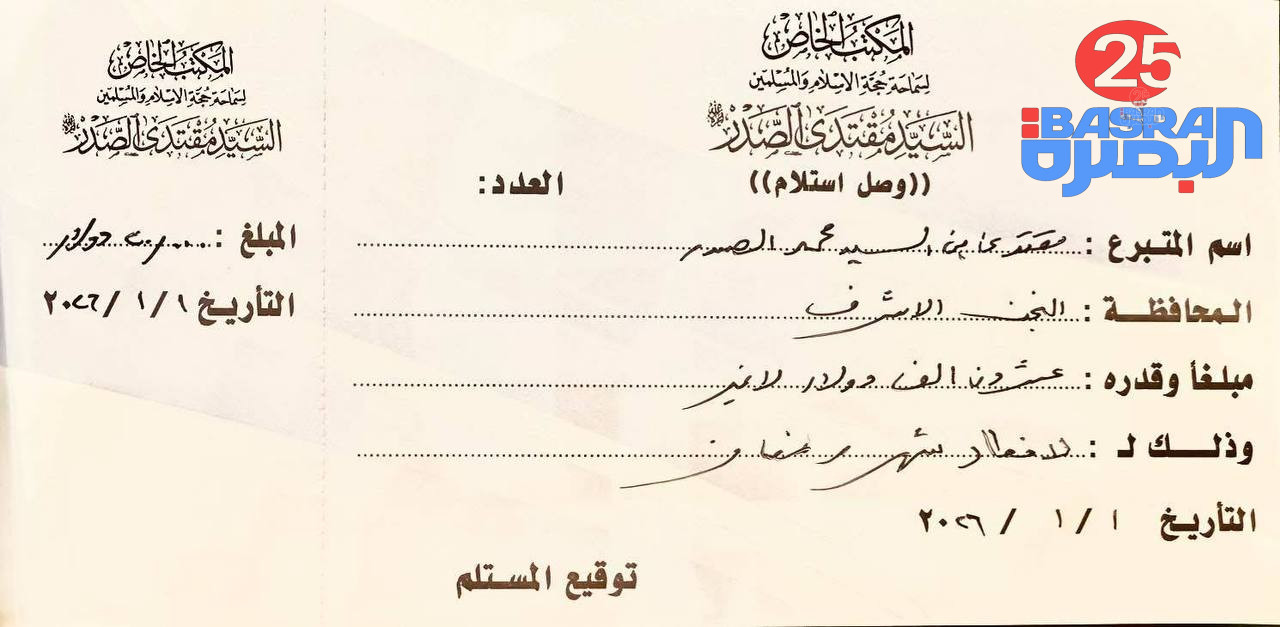 المكتب الخاص
لسماحة حجة الاسلام والمسلمين
السيد مقتدى الصدر
((وصل استلام))
العدد:
اسم المتبرع : مقتدى ابن السيد محمد الصدر
المحافظة : النجف الاشرف
مبلغاً وقدره : عشرون الف دولار لا غير
وذلك لـ : لافطار شهر رمضان
التأريخ ١ / ١ / ٢٠٢٦
توقيع المستلم
المكتب الخاص
لسماحة حجة الاسلام والمسلمين
السيد مقتدى الصدر
المبلغ : دولار
التأريخ ١ / ١ / ٢٠٢٦
25
BASRAN
البصرة